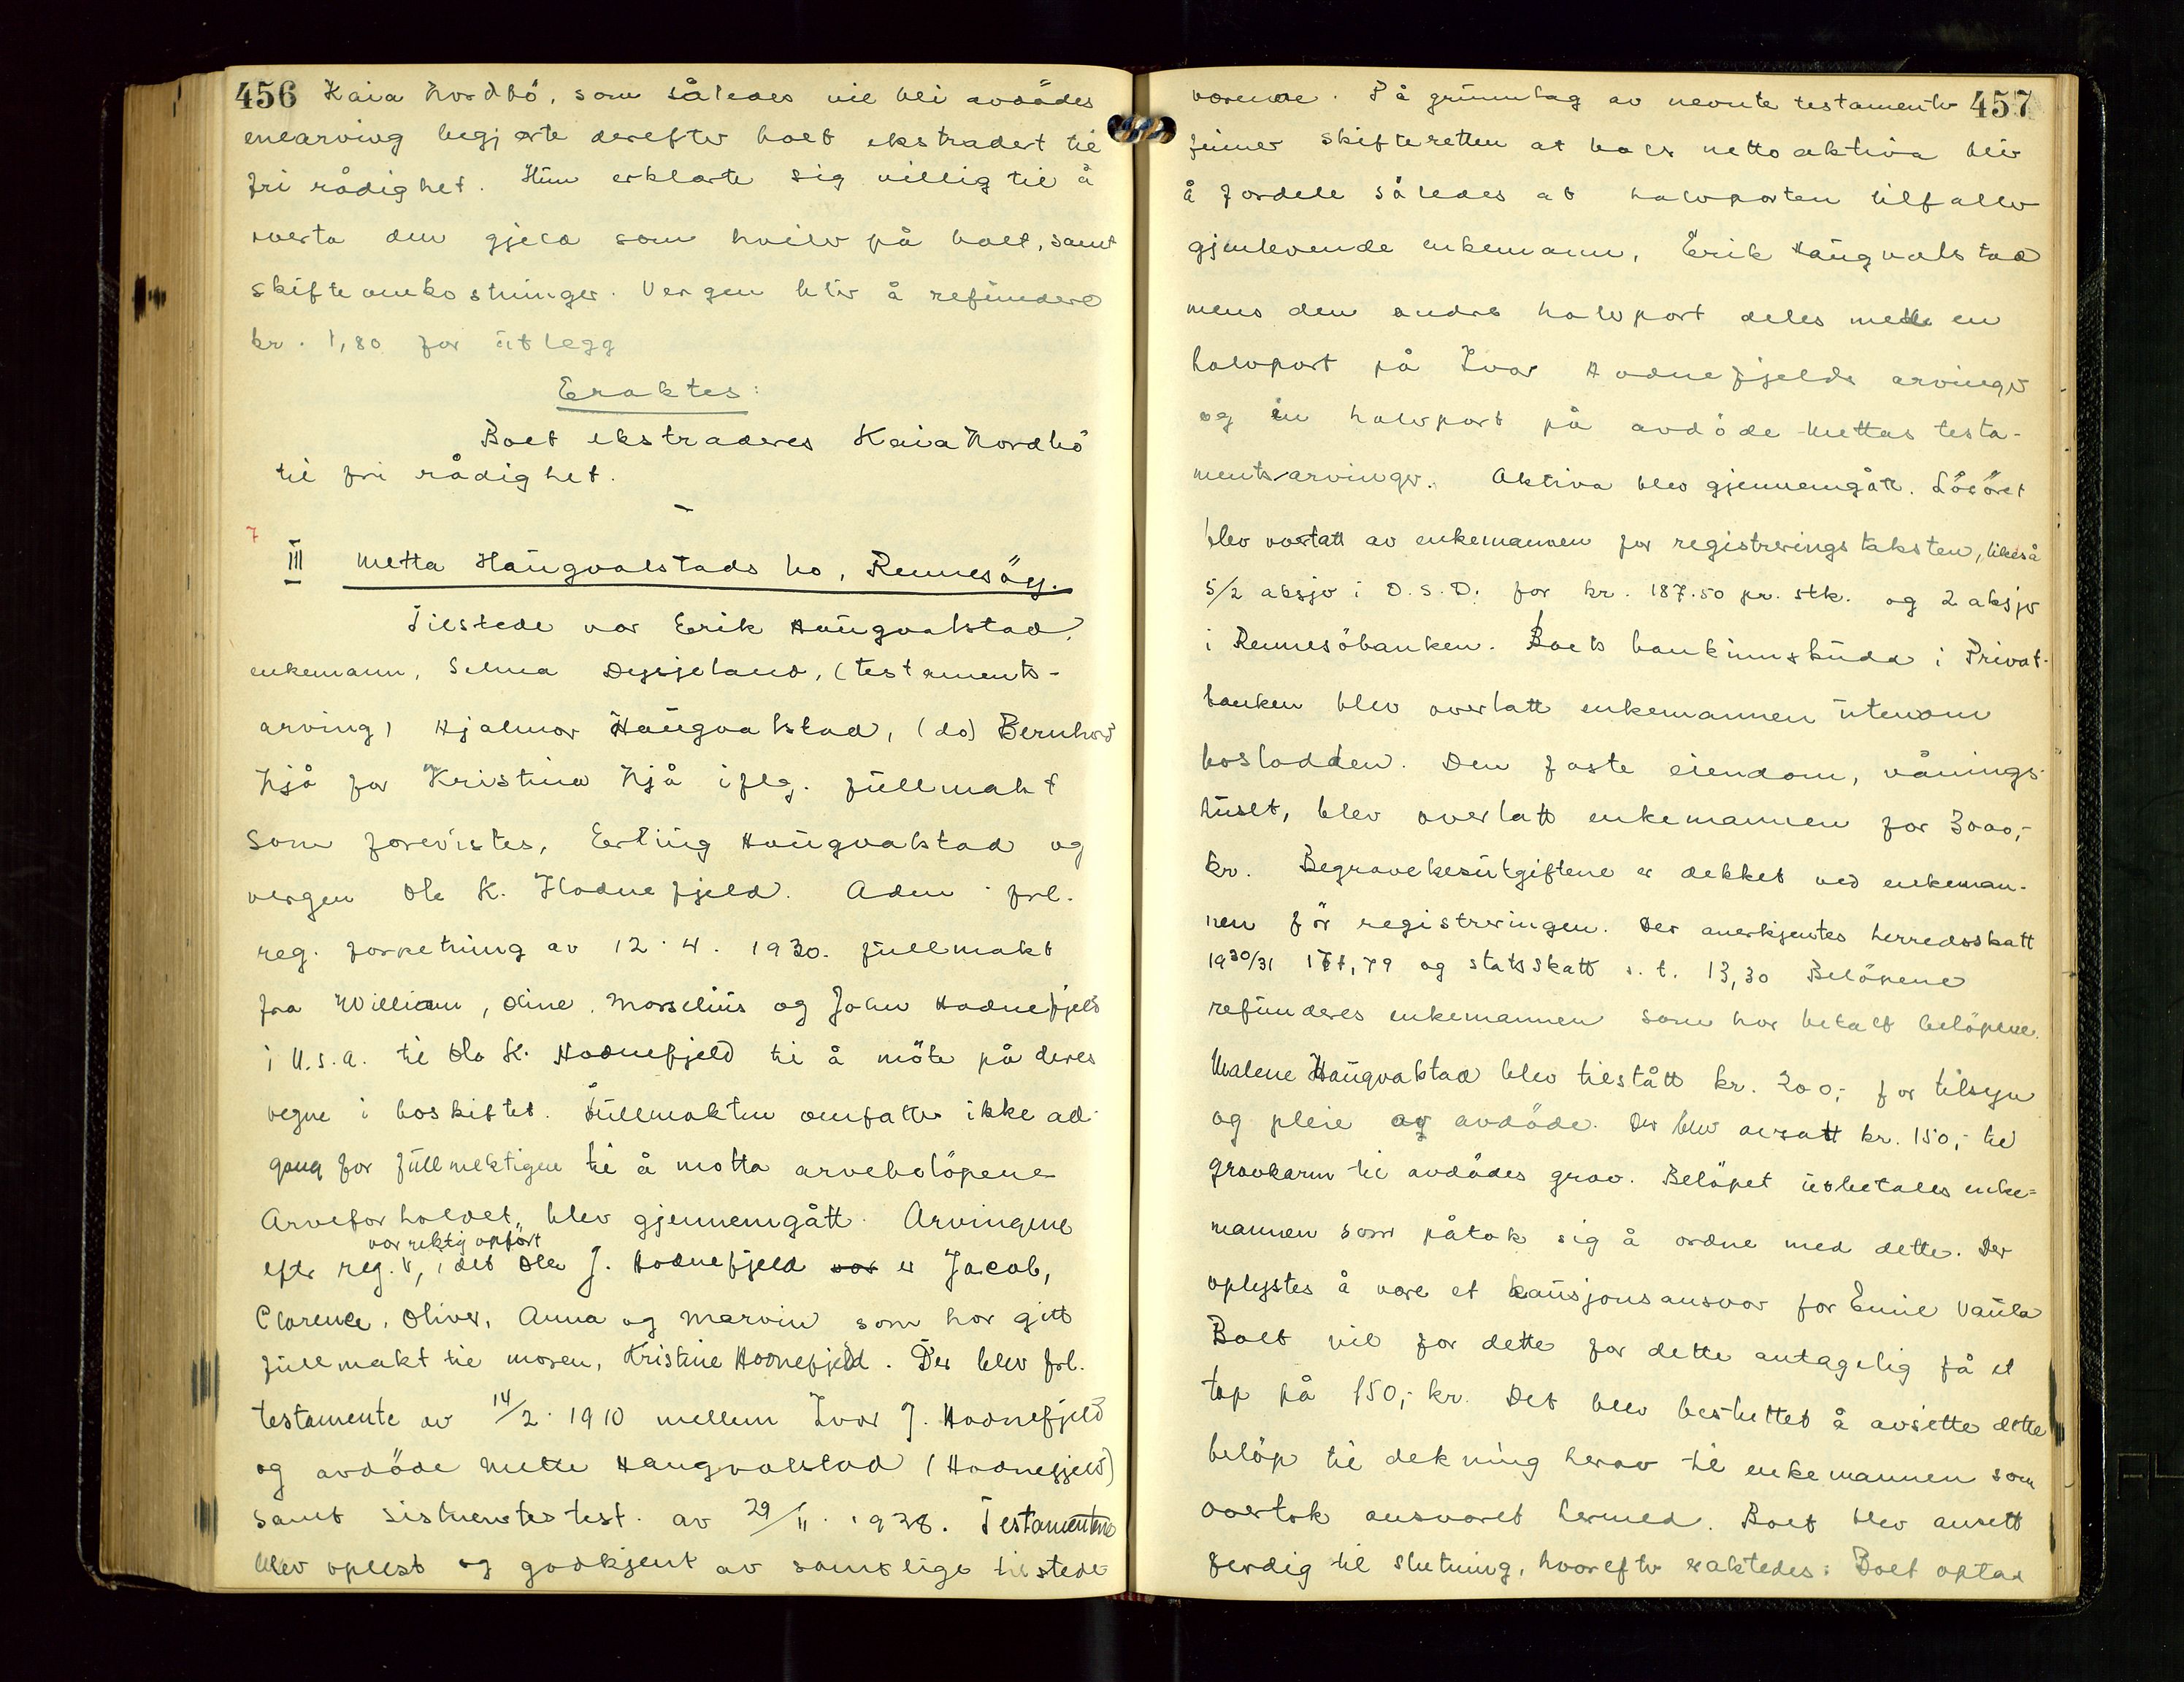 456 Kaia Nordbö, som således vil bli avdödes
enearving begjærte derefter boet ekstradert til
fri rådighet. Hun erklærte sig villig til å
overta den gjeld som hviler på boet, samt
skifteomkostninger. Vergen blir å refundere
kr. 1,80 for utlegg
Eraktes:
Boet ekstraderes Kaia Nordbö
til fri rådighet.
7
III Metta Haugvalstads bo, Rennesöy.
Tilstede var Erik Haugvalstad,
enkemann, Selma Dysjeland, (testaments-
arving) Hjalmar Haugvalstad, (do) Bernhard
Njå for Kristina Njå iflg. fullmakt
som forevistes, Erling Haugvalstad og
vergen Ole K. Hodnefjeld. Adm frl.
reg. forretning av 12.4.1930. fullmakt
fra William, Oline, Marselius og John Hodnefjeld
i U.S.A. til Ole K. Hodnefjeld til å möte på deres
vegne i boskiftet. Fullmakten omfatter ikke ad-
gang for fullmektigen til å motta arvebelöpene
Arveforholdet blev gjennemgått. Arvingene
var riktig opfört
efter reg. V, idet Ole J. Hodnefjeld var er Jacob,
Clarence, Oliver, Anna og Marvin som har gitt
fullmakt til moren, Kristine Hodnefjeld. Der blev frl.
testamente av 14/2. 1910 mellem Ivar J. Hodnefjeld
og avdöde Mette Haugvalstad (Hodnefjeld)
samt sistnevntes test. av 29/11. 1928. Testamentene
blev oplest og godkjent av samtlige tilstede-
værende. På grunnlag av nevnte testamenter 457
finner skifteretten at boets netto aktiva blir
å fordele således at halvparten tilfaller
gjenlevende enkemann, Erik Haugvalstad
mens den andre halvpart deles med en
halvpart på Ivar Hodnefjelds arvinger
og en halvpart på avdöde Mettas testa-
mentsarvinger. Aktiva blev gjennemgått. Lösöret
blev overtatt av enkemannen for registreringstaksten, likeså
5/2 aksjer i D.S.D. for kr. 187.50 pr. stk. og 2 aksjer
i Rennesöbanken. Boets bankinnskudd i Privat-
banken blev overlatt enkemannen utenom
boslodden. Den faste eiendom, vånings-
huset, blev overlatt enkemannen for 3000,-
kr. Begravelsesutgiftene er dekket ved enkeman-
nen för registreringen. Der anerkjentes herredsskatt
1930/31 171,79 og statsskatt s.t. 13,30 Belöpene
refunderes enkemannen som har betalt belöpene.
Malene Haugvalstad blev tilstått kr. 200,- for tilsyn
og pleie av avdöde. Der blev avsatt kr. 150,- til
gravkarm til avdödes grav. Belöpet utbetales enke-
mannen som påtok sig å ordne med dette. Der
oplystes å være et kausjonsansvar for Emil Vaula
Boet vil for dette for dette antagelig få et
tap på 150,- kr. Det blev besluttet å avsette dette
belöp til dekning herav til enkemannen som
overtok ansvaret hermed. Boet blev ansett
ferdig til slutning, hvorefter eraktedes: Boet optas